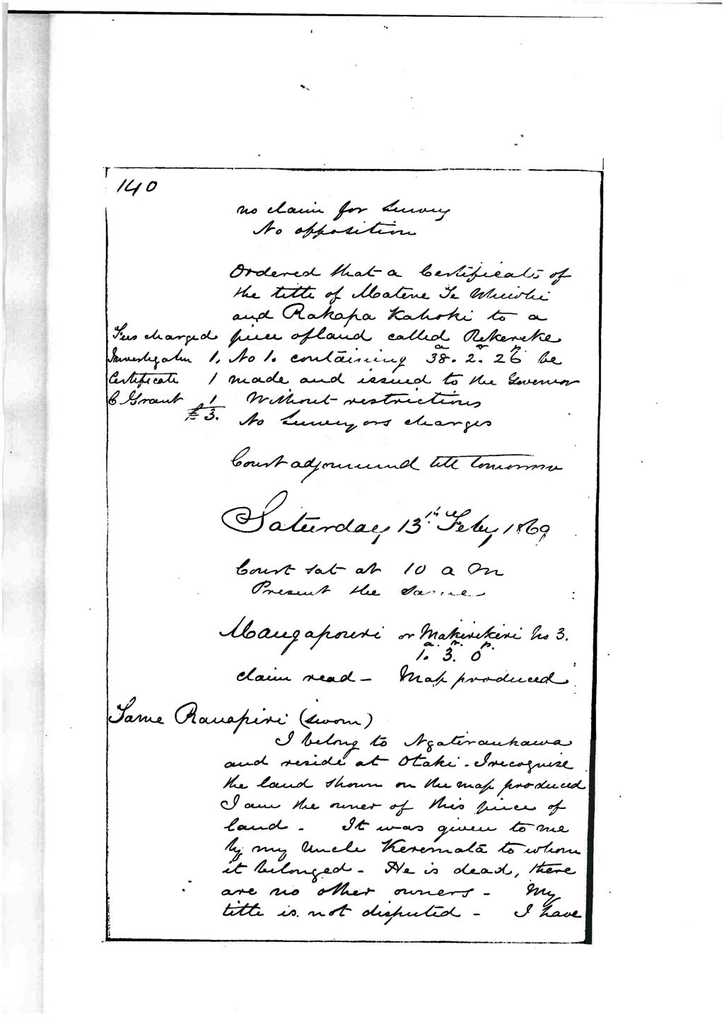 140
no claim for Survey
No opposition
Ordered that a Certificate of
the title of Matene Te Whiwhi
and Rakapa Kahoki to a
Fees charged piece of land called Rekereke
Investigatn 1. No 1. containing 38.a 2.r 26p be
Certificate 1 made and issued to the Governor
C Grant 1 Without restrictions
£3. No Surveyors charges
Court adjourned till tomorrow
Saturday 13th Feby 1869
Court sat at 10 a m
Present the same
Maugapouri or Makirikiri No 3.
1.a 3.r 0p
claim read – Map produced
Tame Ranapiri (sworn)
I belong to Ngatiraukawa
and reside at Otaki – I recognise
the land shown on the map produced
I am the owner of this piece of
land – It was given to me
by my Uncle Keremata to whom
it belonged – He is dead, there
are no other owners – My
title is not disputed – I have